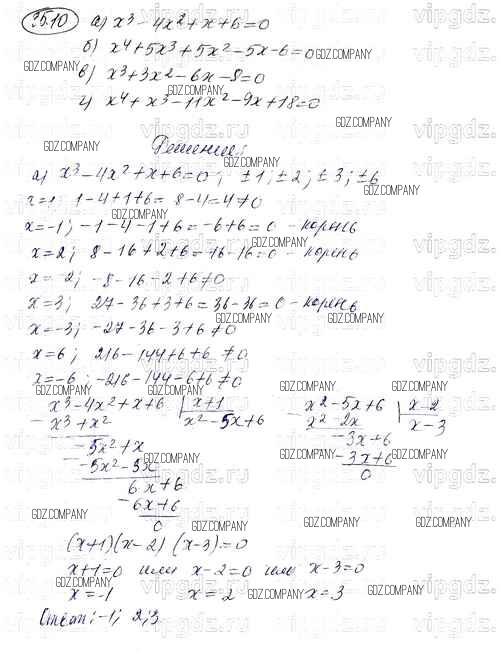 35.10 а) x³-4x²+x+6=0
б) x⁴+5x³+5x²-5x-6=0
в) x³+3x²-6x-8=0
г) x⁴+x³-11x²-9x+18=0
Решение:
а) x³-4x²+x+6=0; ±1; ±2; ±3; ±6
x=1; 1-4+1+6=8-4=4≠0
x=-1; -1-4-1+6=-6+6=0 - корень
x=2; 8-16+2+6=16-16=0 - корень
x=-2; -8-16-2+6≠0
x=3; 27-36+3+6=36-36=0 - корень
x=-3; -27-36-3+6≠0
x=6; 216-144+6+6≠0
x=-6; -216-144-6+6≠0
x³-4x²+x+6 x+1 x²-5x+6 x-2
-x³+x² x²-5x+6 -x²-2x x-3
-5x²+x -3x+6
-5x²-5x -3x+6
6x+6 0
-6x+6
0
(x+1)(x-2)(x-3)=0
x+1=0 или x-2=0 или x-3=0
x=-1 x=2 x=3
Ответ: -1; 2; 3
GDZ.COMPANY
vipgdz.ru